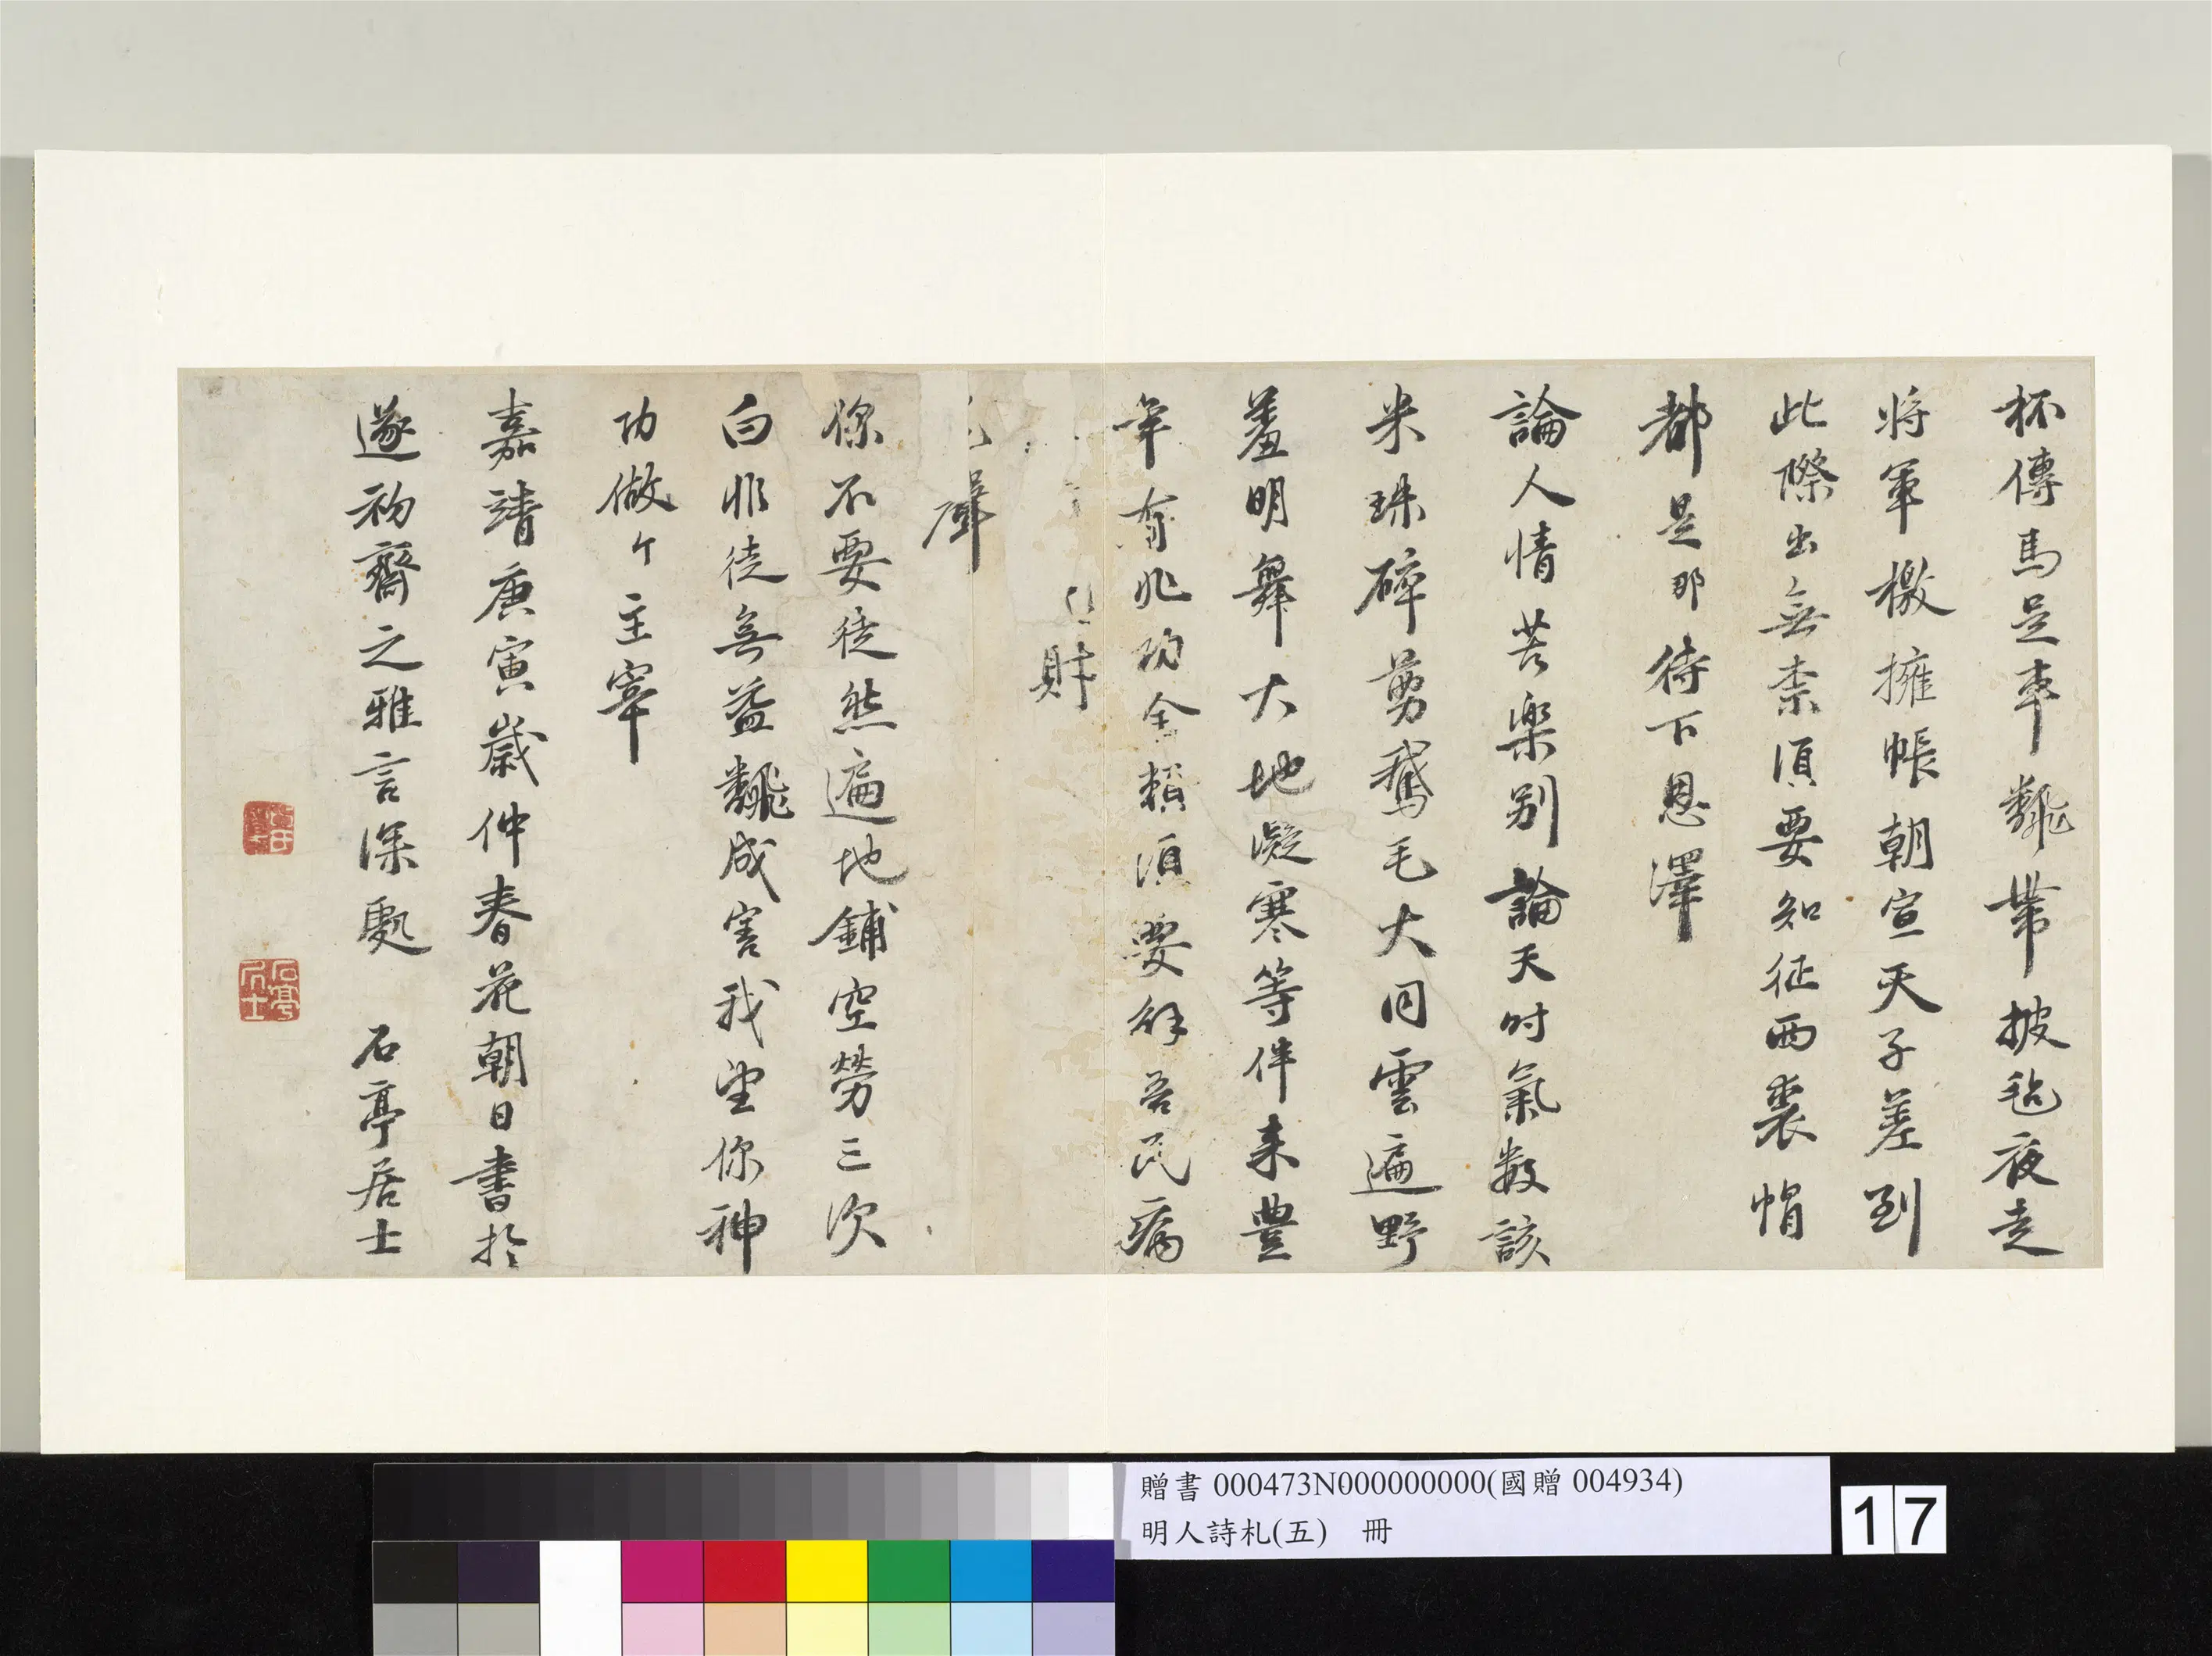 杯傳馬足車飜帶披毡夜走
將軍檄擁帳朝宣天子差到
此際出無柰須要知征西裘帽
都是那待下恩澤
論人情苦樂别論天时氣数該
米珠碎剪鵞毛大同雲遍野
羞明舞大地凝寒等伴来豊
年有兆功全賴須要行吾民瘼
財
犀
你不要徒然遍地鋪空勞三次
白非徒無益飜成害我望你神
功做个主宰
嘉靖庚寅歲仲春花朝日書於
遂初齋之雅言深處 石亭居士
石亭居士
贈書 000473N000000000(國贈 004934)
明人詩札(五) 冊
17